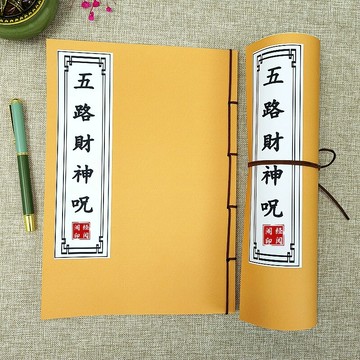 五路財神呪
五路財神呪